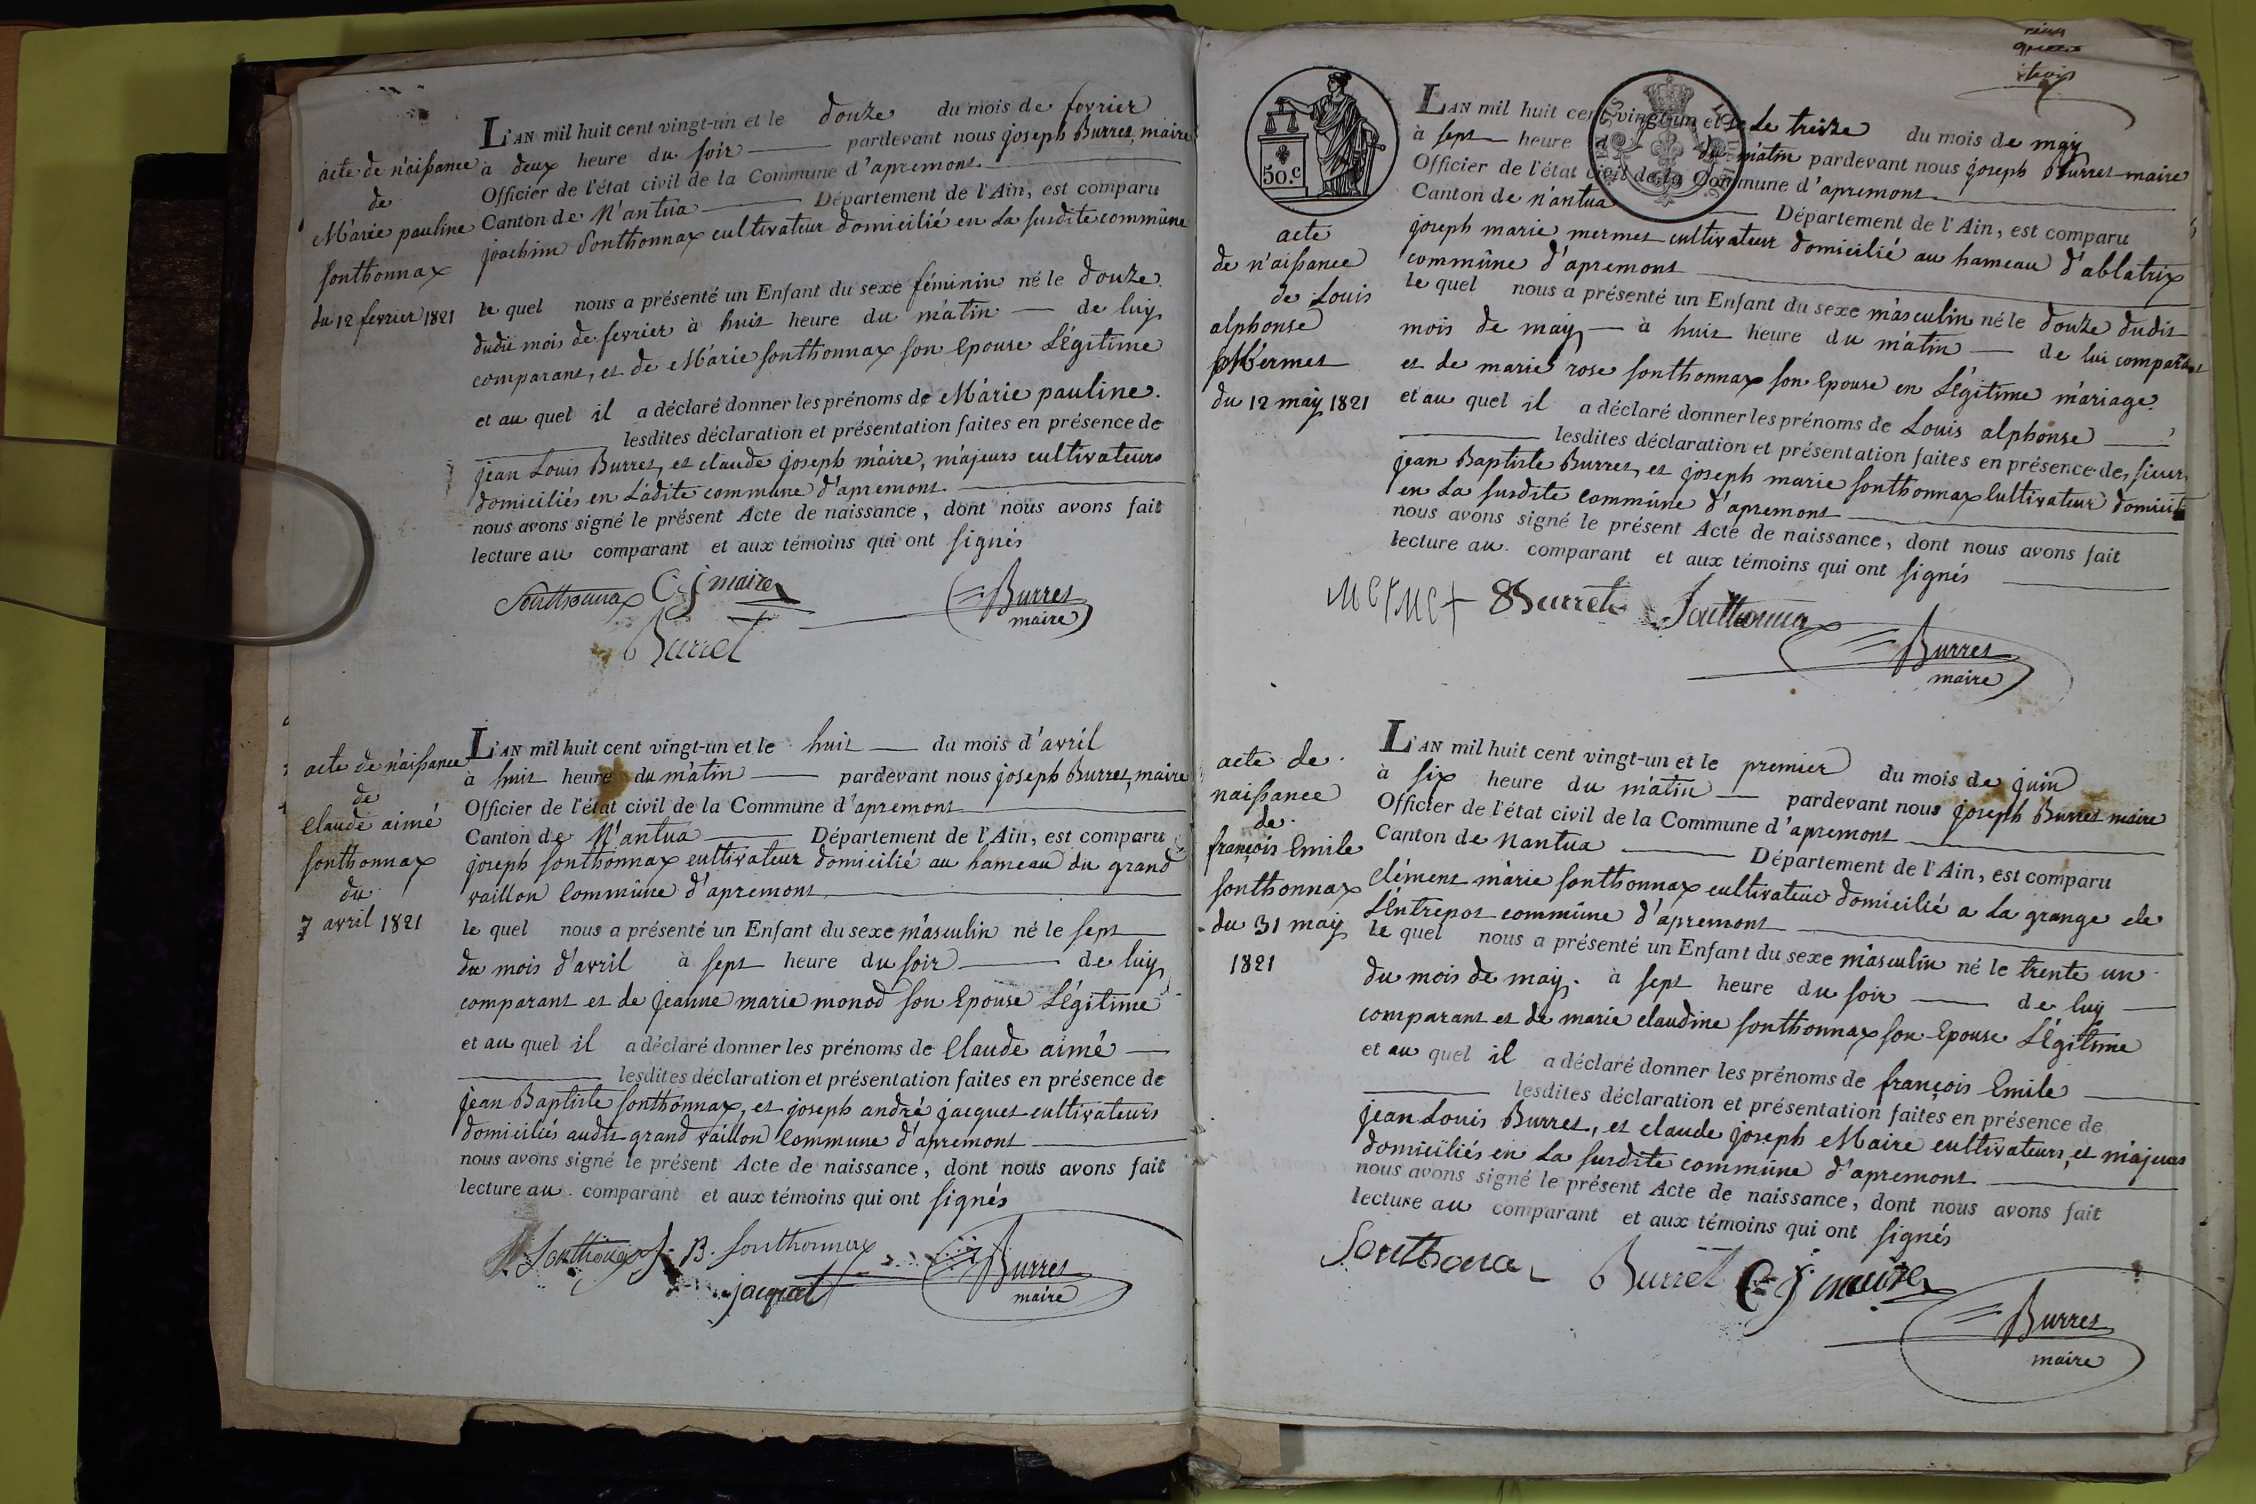 L'AN mil huit cent vingt-un et le douze du mois de fevrier
à deux heure du soir pardevant nous joseph Burret, maire
Officier de l'état civil de la Commune d'apremont
Canton de N'antua Département de l'Ain, est comparu
joachim Sonthonnax cultivateur domicilié en La susdite commune
le quel nous a présenté un Enfant du sexe féminin né le douze
dudit mois de fevrier à huit heure du mâtin de luy
comparant, et de Mârie sonthonnax son Epouse Légitime
et au quel il a déclaré donner les prénoms de Mârie pauline.
lesdites déclaration et présentation faites en présence de
jean Louis Burret, et claude joseph mâire, mâjeurs cultivateurs
domiciliés en Lâdite commune d'apremont
nous avons signé le présent Acte de naissance, dont nous avons fait
lecture au comparant et aux témoins qui ont signés
Sonthonnax C j maire
Burret
maire
Burret
acte de nâissance
de
Mârie pauline
sonthonnax
du 12 fevrier 1821
L'AN mil huit cent vingt-un et le huit du mois d'avril
à huit heure du mâtin pardevant nous joseph Burret, maire
Officier de l'état civil de la Commune d'apremont
Canton de N'antua Département de l'Ain, est comparu
joseph sonthonnax cultivateur domicilié au hameau du grand
vaillon Commûne d'apremont
le quel nous a présenté un Enfant du sexe mâsculin né le sept
du mois d'avril à sept heure du soir de luy
comparant et de jeanne marie monod son Epouse Légitime
et au quel il a déclaré donner les prénoms de Claude aimé
lesdites déclaration et présentation faites en présence de
jean Baptiste sonthonnax, et joseph andré jacquet cultivateurs
domiciliés audit grand vaillon Commune d'apremont
nous avons signé le présent Acte de naissance, dont nous avons fait
lecture au comparant et aux témoins qui ont signés
J. B. sonthonnax
jacquet
Burret
maire
acte de nâissance
de
Claude aimé
sonthonnax
du
7 avril 1821
50.c
L'AN mil huit cent vingt-un et le Le treize du mois de may
à sept heure du mâtin pardevant nous joseph Burret maire
Officier de l'état civil de la Commune d'apremont
Canton de n'antua Département de l'Ain, est comparu
joseph marie mermet cultivateur domicilié au hameau d'ablatrix
commûne d'apremont
le quel nous a présenté un Enfant du sexe mâsculin né le douze dudit
mois de may à huit heure du mâtin de lui comparant
et de marie rose sonthonnax son Epouse en Légitime mâriage.
et au quel il a déclaré donner les prénoms de Louis alphonse
lesdites déclaration et présentation faites en présence de, sieur,
jean Baptiste Burret, et joseph marie sonthonnax Cultivateur domicil
en La susdite Commûne d'apremont
nous avons signé le présent Acte de naissance, dont nous avons fait
lecture au comparant et aux témoins qui ont signés
Mermet Burret Sonthonnax
Burret
maire
acte
de n'aissance
de Louis
alphonse
Mermet
du 12 may 1821
L'AN mil huit cent vingt-un et le premier du mois de juin
à six heure du mâtin pardevant nous joseph Burret maire
Officier de l'état civil de la Commune d'apremont
Canton de nantua Département de l'Ain, est comparu
Clément mârie sonthonnax cultivateur domicilié a La grange de
L'Entrepot commûne d'apremont
le quel nous a présenté un Enfant du sexe mâsculin né le trente un
du mois de may. à sept heure du soir de luy
comparant et de marie claudine sonthonnax son Epouse Légitime
et au quel il a déclaré donner les prénoms de françois Emile
lesdites déclaration et présentation faites en présence de
jean Louis Burret, et claude joseph Maire cultivateurs, et mâjeurs
domiciliés en La susdite commûne d'apremont
nous avons signé le présent Acte de naissance, dont nous avons fait
lecture au comparant et aux témoins qui ont signés
Sonthonax Burret C j maire
Burret
maire
acte de
naissance
de
françois Emile
sonthonnax
du 31 may
1821